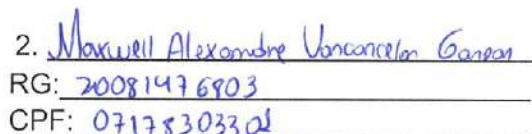 2. Maxwell Alexandre Vanconcelos
RG: 20081476803
CPF: 071783033